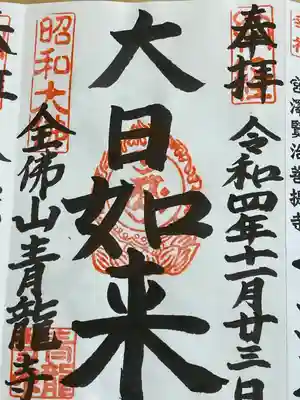 奉拝
令和四年十一月廿三日
大日如来
昭和大佛
全佛山青龍寺
青龍
宮澤賢治菩提寺